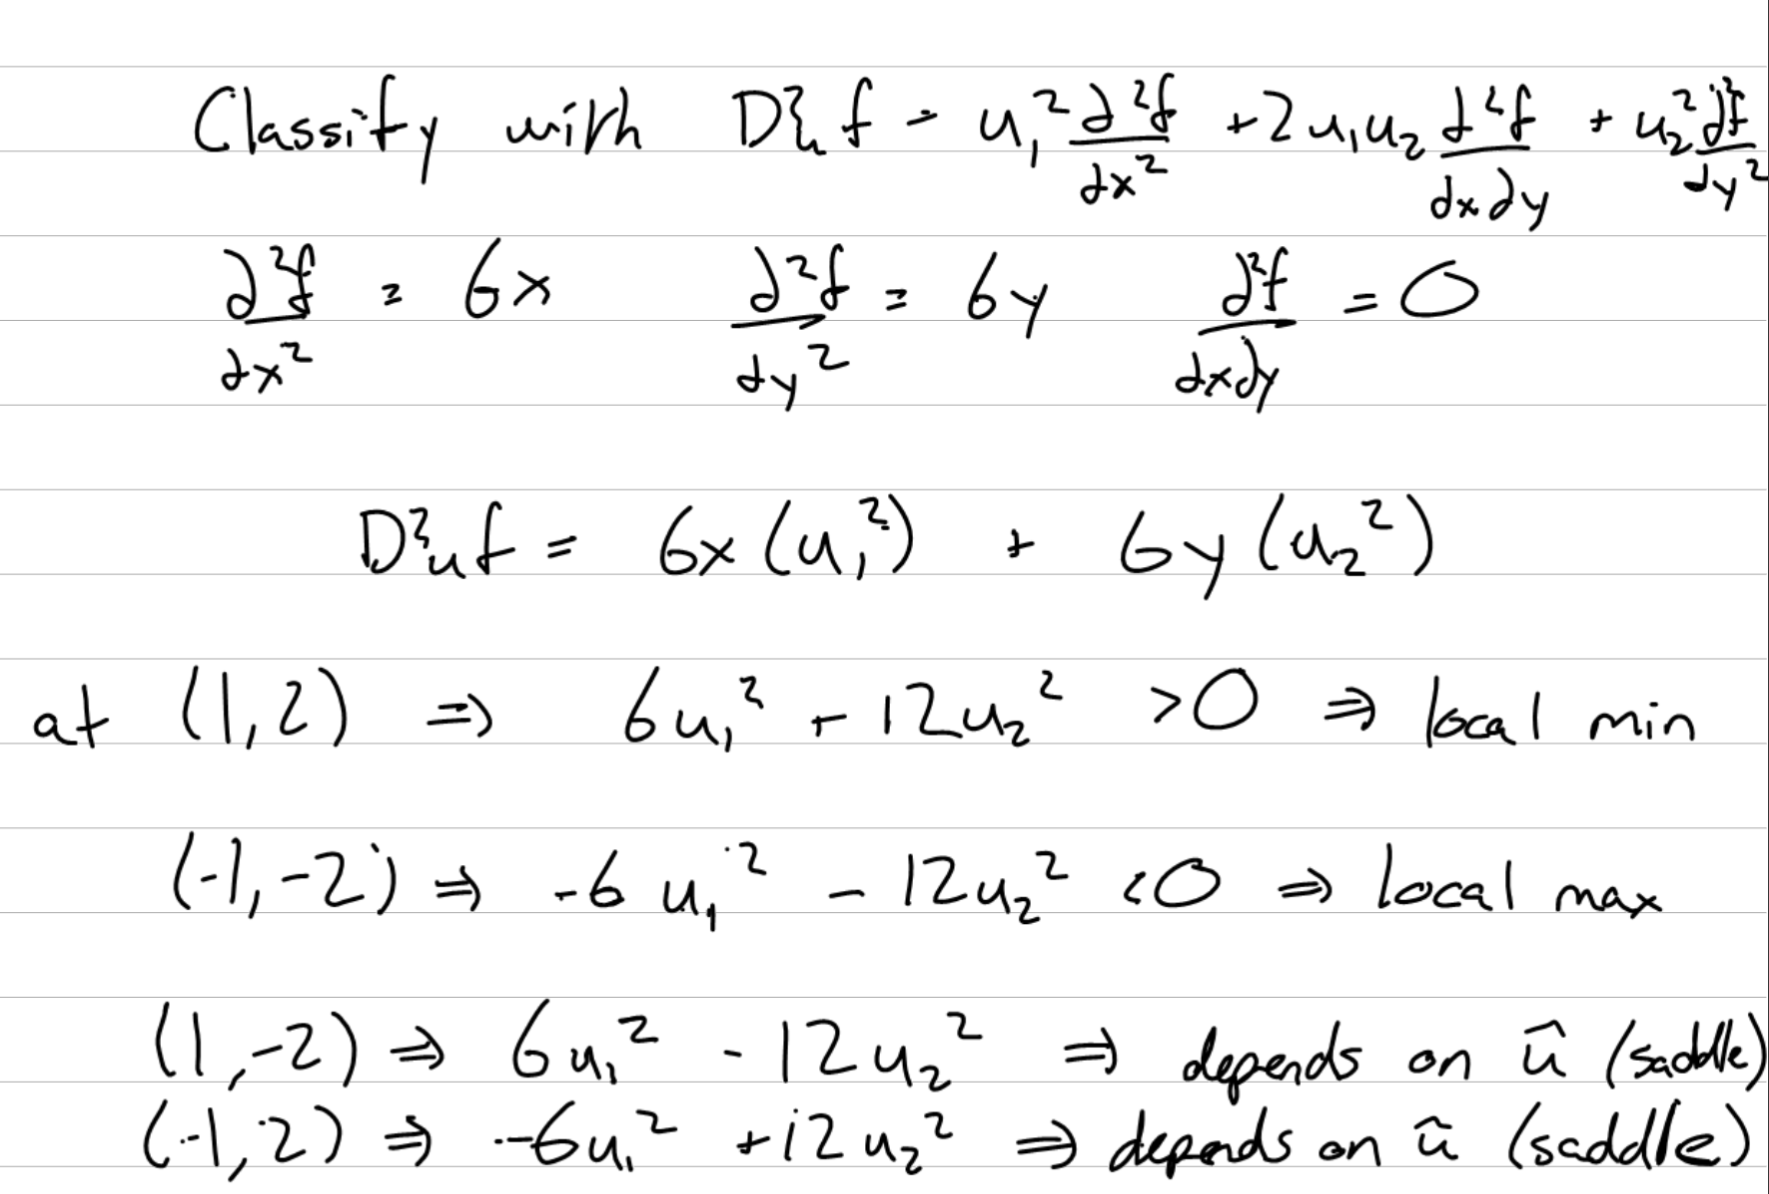 Classify with D²ᵤ f = u₁² ∂²f/∂x² + 2u₁u₂ ∂²f/∂x∂y + u₂² ∂²f/∂y²
∂²f/∂x² = 6x ∂²f/∂y² = 6y ∂²f/∂x∂y = 0
D²ᵤf = 6x(u₁²) + 6y(u₂²)
at (1,2) ⇒ 6u₁² + 12u₂² >0 ⇒ local min
(-1,-2) ⇒ -6u₁² - 12u₂² <0 ⇒ local max
(1,-2) ⇒ 6u₁² - 12u₂² ⇒ depends on û (saddle)
(-1,2) ⇒ -6u₁² +12u₂² ⇒ depends on û (saddle)